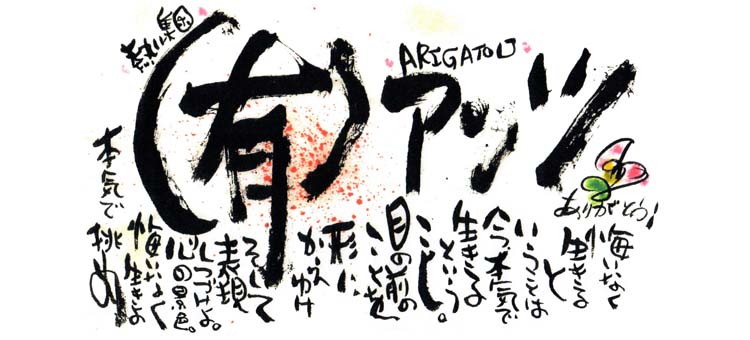 熱集団
(有)アンツ
ARIGATOU
ありがとう!
悔いなく
生きると
いうことは
今、本気で
生きる
という
こと。
目の前の
ことを
形に
そして
表現
しつづけよ。
心の景色。
悔いなく
生きよ
本気で挑め